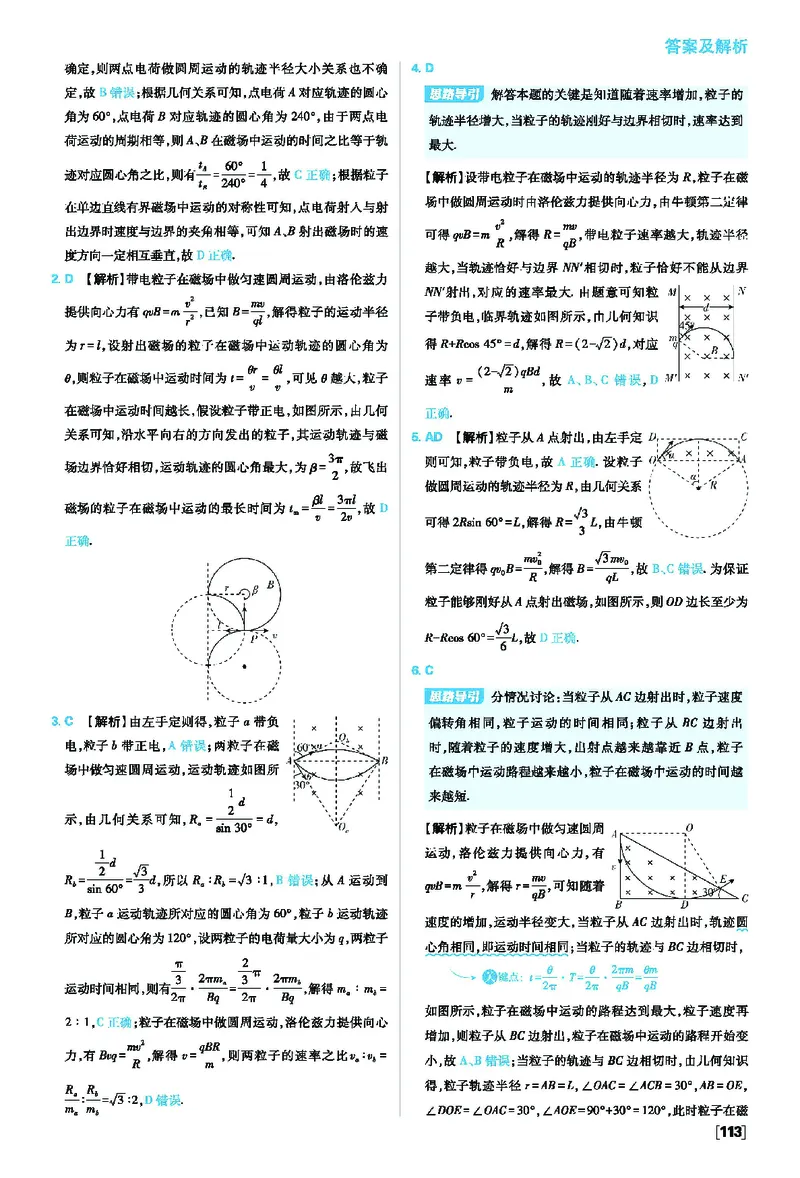 答案及解析
确定,则两点电荷做圆周运动的轨迹半径大小关系也不确
定,故 B 错误;根据几何关系可知,点电荷 A 对应轨迹的圆心
角为 60°,点电荷 B 对应轨迹的圆心角为 240°,由于两点电
荷运动的周期相等,则 A、B 在磁场中运动的时间之比等于轨
迹对应圆心角之比,则有 t_A/t_B = 60°/240° = 1/4,故 C 正确;根据粒子
在单边直线有界磁场中运动的对称性可知,点电荷射入与射
出边界时速度与边界的夹角相等,可知 A、B 射出磁场时的速
度方向一定相互垂直,故 D 正确.
2. D 【解析】带电粒子在磁场中做匀速圆周运动,由洛伦兹力
提供向心力有 qvB=m v²/r²,已知 B=mv/ql,解得粒子的运动半径
为 r=l,设射出磁场的粒子在磁场中运动轨迹的圆心角为
θ,则粒子在磁场中运动时间为 t=θr/v=θl/v,可见 θ 越大,粒子
在磁场中运动时间越长,假设粒子带正电,如图所示,由几何
关系可知,沿水平向右的方向发出的粒子,其运动轨迹与磁
场边界恰好相切,运动轨迹的圆心角最大,为 β=3π/2,故飞出
磁场的粒子在磁场中运动的最长时间为 t_m=βl/v=3πl/2v,故 D
正确.
r β B
l P v
3. C 【解析】由左手定则得,粒子 a 带负
电,粒子 b 带正电,A 错误;两粒子在磁
场中做匀速圆周运动,运动轨迹如图所
示,由几何关系可知,R_a=(1/2 d)/sin 30°=d,
O_b
60° a
A B
b
30°
O_a
R_b=(1/2 d)/sin 60°=√3/3 d,所以 R_a∶R_b=√3∶1,B 错误;从 A 运动到
B,粒子 a 运动轨迹所对应的圆心角为 60°,粒子 b 运动轨迹
所对应的圆心角为 120°,设两粒子的电荷量大小为 q,两粒子
运动时间相同,则有 (π/3)/2π·2πm_a/Bq=(2/3 π)/2π·2πm_b/Bq,解得 m_a∶m_b=
2∶1,C 正确;粒子在磁场中做圆周运动,洛伦兹力提供向心
力,有 Bvq=mv²/R,解得 v=qBR/m,则两粒子的速率之比 v_a∶v_b=
R_a/m_a∶R_b/m_b=√3∶2,D 错误.
4. D
思路导引 解答本题的关键是知道随着速率增加,粒子的
轨迹半径增大,当粒子的轨迹刚好与边界相切时,速率达到
最大.
【解析】设带电粒子在磁场中运动的轨迹半径为 R,粒子在磁
场中做圆周运动时由洛伦兹力提供向心力,由牛顿第二定律
可得 qvB=m v²/R,解得 R=mv/qB,带电粒子速率越大,轨迹半径
越大,当轨迹恰好与边界 NN′相切时,粒子恰好不能从边界
NN′射出,对应的速率最大. 由题意可知粒
子带负电,临界轨迹如图所示,由几何知识
得 R+Rcos 45°=d,解得 R=(2-√2)d,对应
速率 v=(2-√2)qBd/m,故 A、B、C 错误,D
正确.
M N
d
45°
m
q
B
M′ N′
5. AD 【解析】粒子从 A 点射出,由左手定
则可知,粒子带负电,故 A 正确. 设粒子
做圆周运动的轨迹半径为 R,由几何关系
可得 2Rsin 60°=L,解得 R=√3/3 L,由牛顿
D C
O α A
α R
第二定律得 qv₀B=mv₀²/R,解得 B=√3mv₀/qL,故 B、C 错误. 为保证
粒子能够刚好从 A 点射出磁场,如图所示,则 OD 边长至少为
R-Rcos 60°=√3/6 L,故 D 正确.
6. C
思路导引 分情况讨论:当粒子从 AC 边射出时,粒子速度
偏转角相同,粒子运动的时间相同;粒子从 BC 边射出
时,随着粒子的速度增大,出射点越来越靠近 B 点,粒子
在磁场中运动路程越来越小,粒子在磁场中运动的时间越
来越短.
【解析】粒子在磁场中做匀速圆周
运动,洛伦兹力提供向心力,有
qvB=m v²/r,解得 r=mv/qB,可知随着
A O
v
E
30°
B D C
速度的增加,运动半径变大,当粒子从 AC 边射出时,轨迹圆
心角相同,即运动时间相同;当粒子的轨迹与 BC 边相切时,
关键点: t=θ/2π·T=θ/2π·2πm/qB=θm/qB
如图所示,粒子在磁场中运动的路程达到最大,粒子速度再
增加,则粒子从 BC 边射出,粒子在磁场中运动的路程开始变
小,故 A、B 错误;当粒子的轨迹与 BC 边相切时,由几何知识
得,粒子轨迹半径 r=AB=L,∠OAC=∠ACB=30°,AB=OE,
∠DOE=∠OAC=30°,∠AOE=90°+30°=120°,此时粒子在磁
[113]